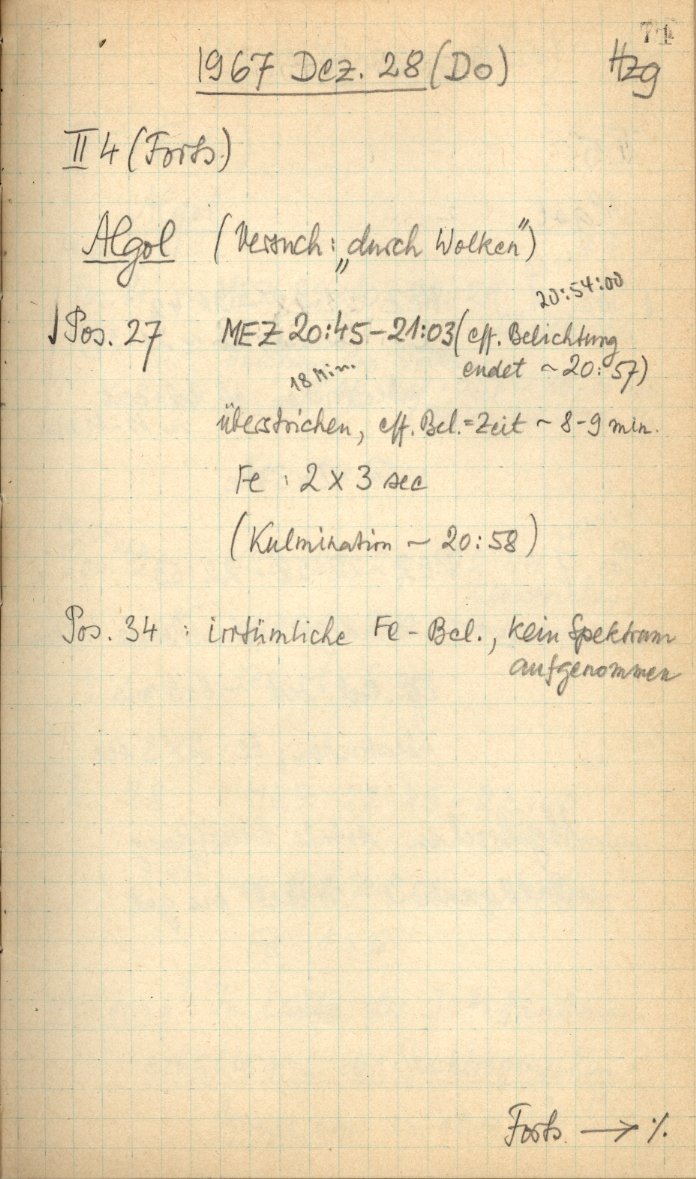 71
1967 Dez. 28 (Do) Hzg
II 4 (Forts.)
Algol (Versuch: „durch Wolken")
20:54:00
Pos. 27 MEZ 20:45-21:03 (eff. Belichtung
18 Min. endet ~ 20:57)
überstrichen, eff. Bel.=Zeit ~ 8-9 min.
Fe : 2 x 3 sec
(Kulmination ~ 20:58)
Pos. 34 : irrtümliche Fe-Bel., kein Spektrum
aufgenommen
Forts → ./.